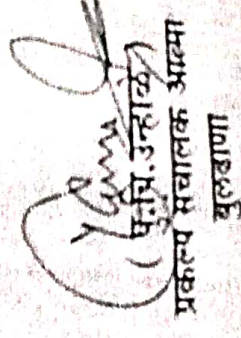 (पु.मि.उन्हाळे)
प्रकल्प संचालक आत्मा
बुलढाणा